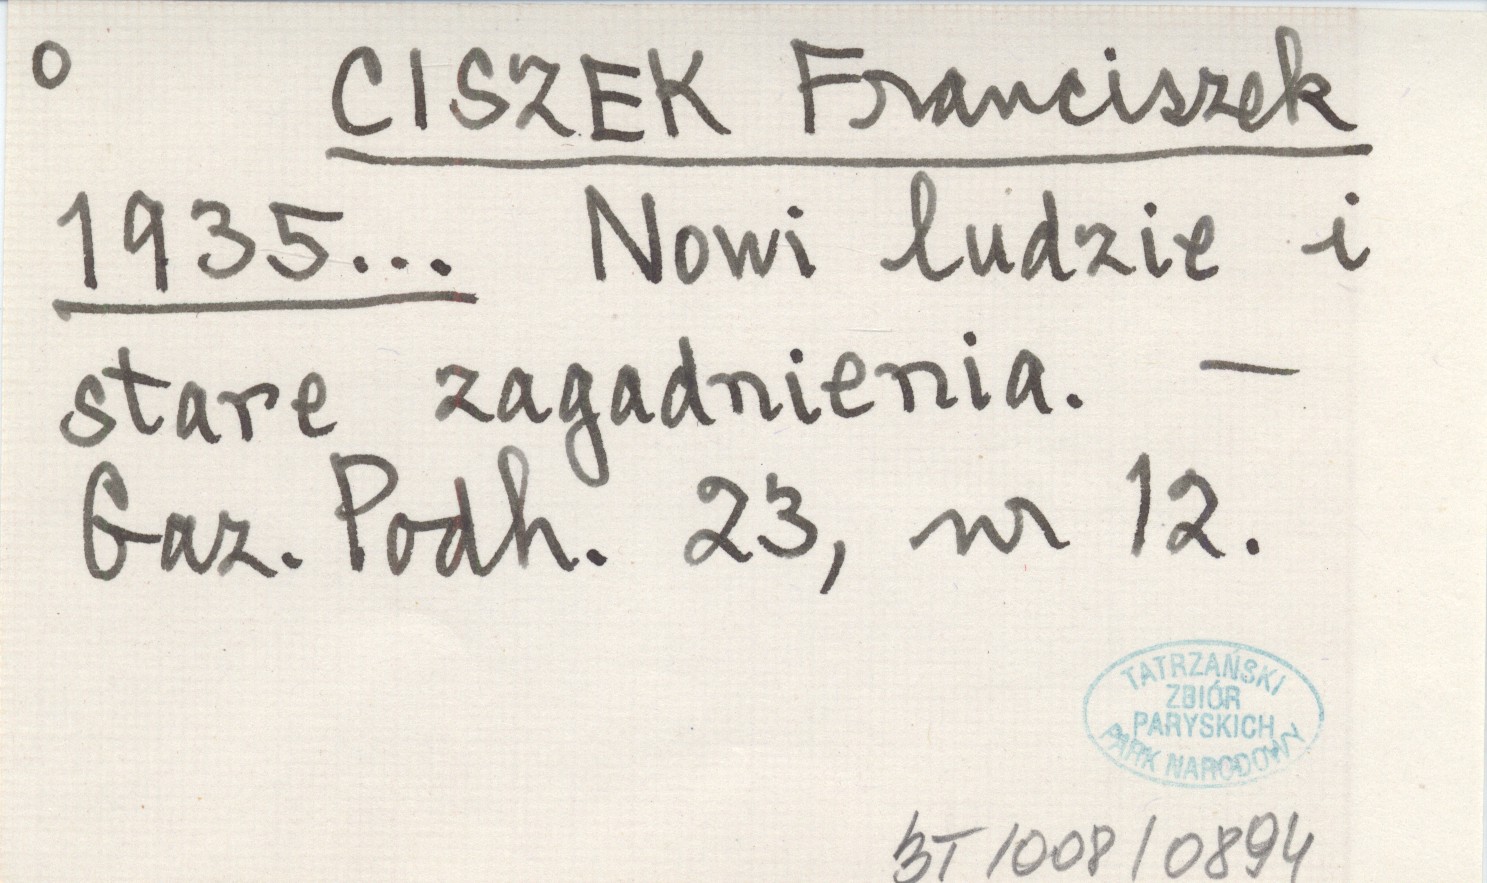 o CISZEK Franciszek
1935... Nowi ludzie i
stare zagadnienia. —
Gaz. Podh. 23, nr 12.
TATRZAŃSKI
ZBIÓR
PARYSKICH
PARK NARODOWY
BT/008/0894